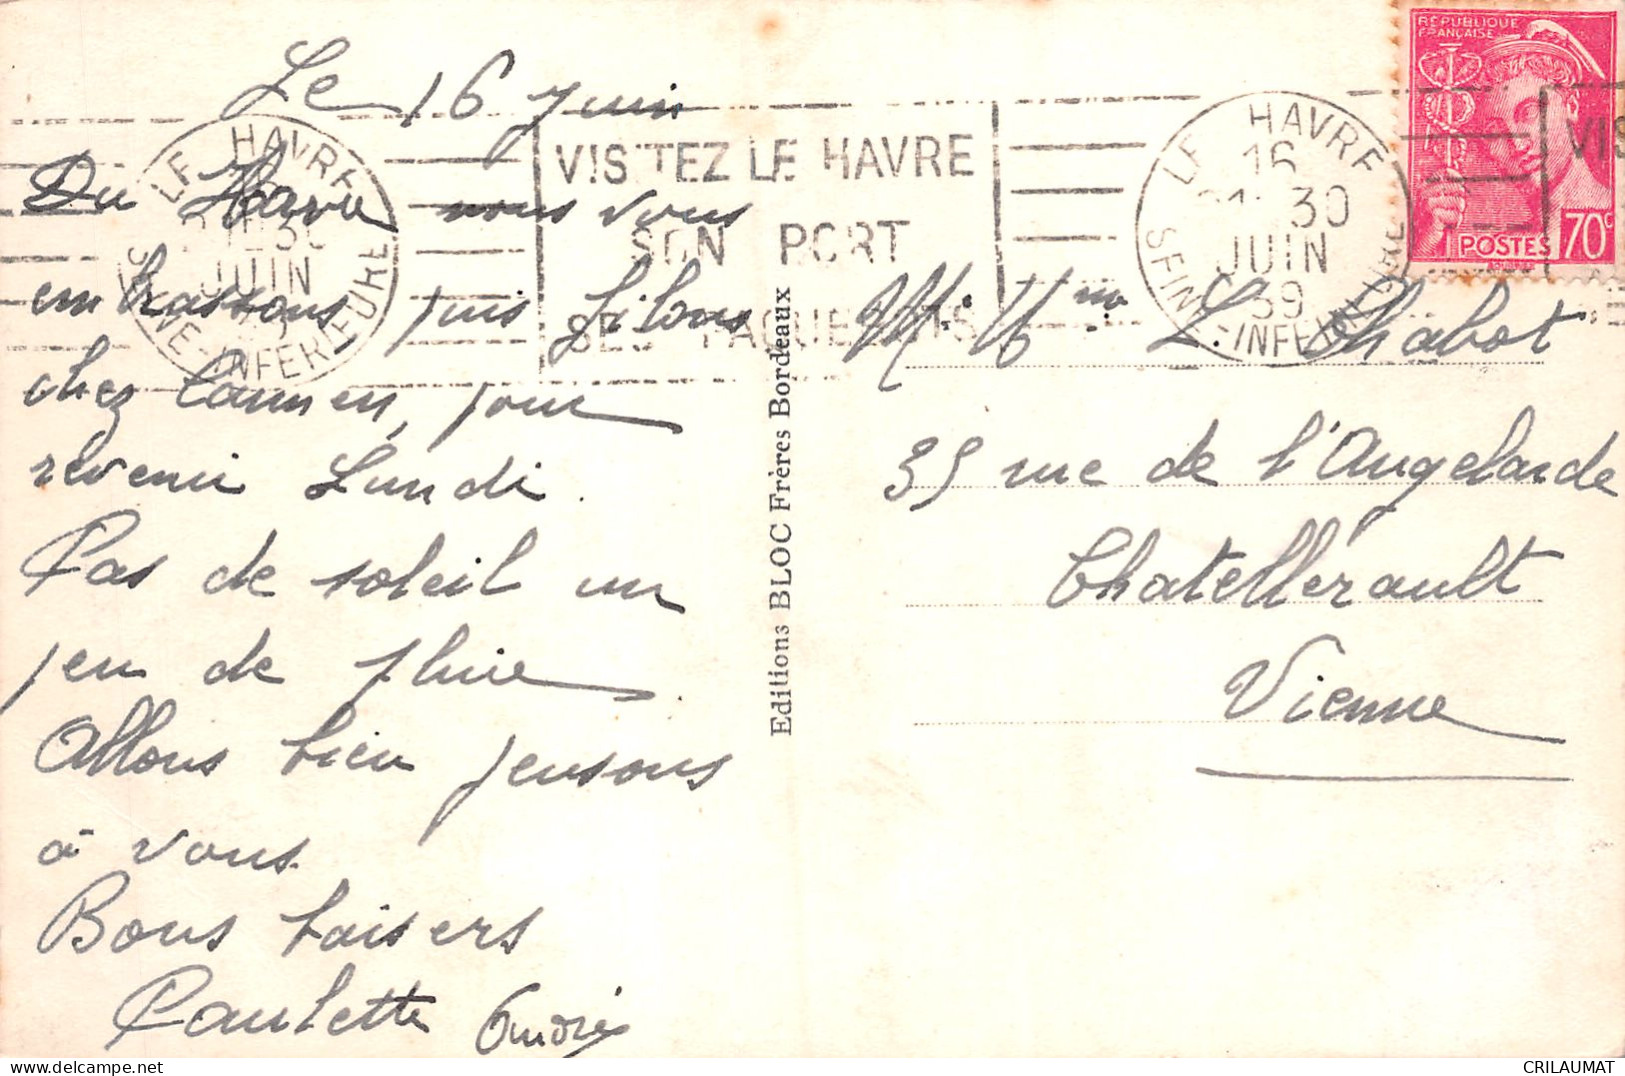 Le 16 Juin
Du Havre nous vous
embrassons puis filons
chez Carmen, pour
revenir Lundi.
Pas de soleil un
peu de pluie.
Allons bien pensons
à vous.
Bons baisers
Paulette André
Editions BLOC Frères Bordeaux
LE HAVRE
JUIN
SEINE-INFÉRIEURE
VISITEZ LE HAVRE
SON PORT
SES PAQUEBOTS
LE HAVRE
16
30
JUIN
39
SEINE-INFÉRIEURE
VIS
RÉPUBLIQUE
FRANÇAISE
POSTES 70c
M. Mme L. Chabot
35 rue de l'Angelarde
Chatellerault
Vienne
CRILAUMAT